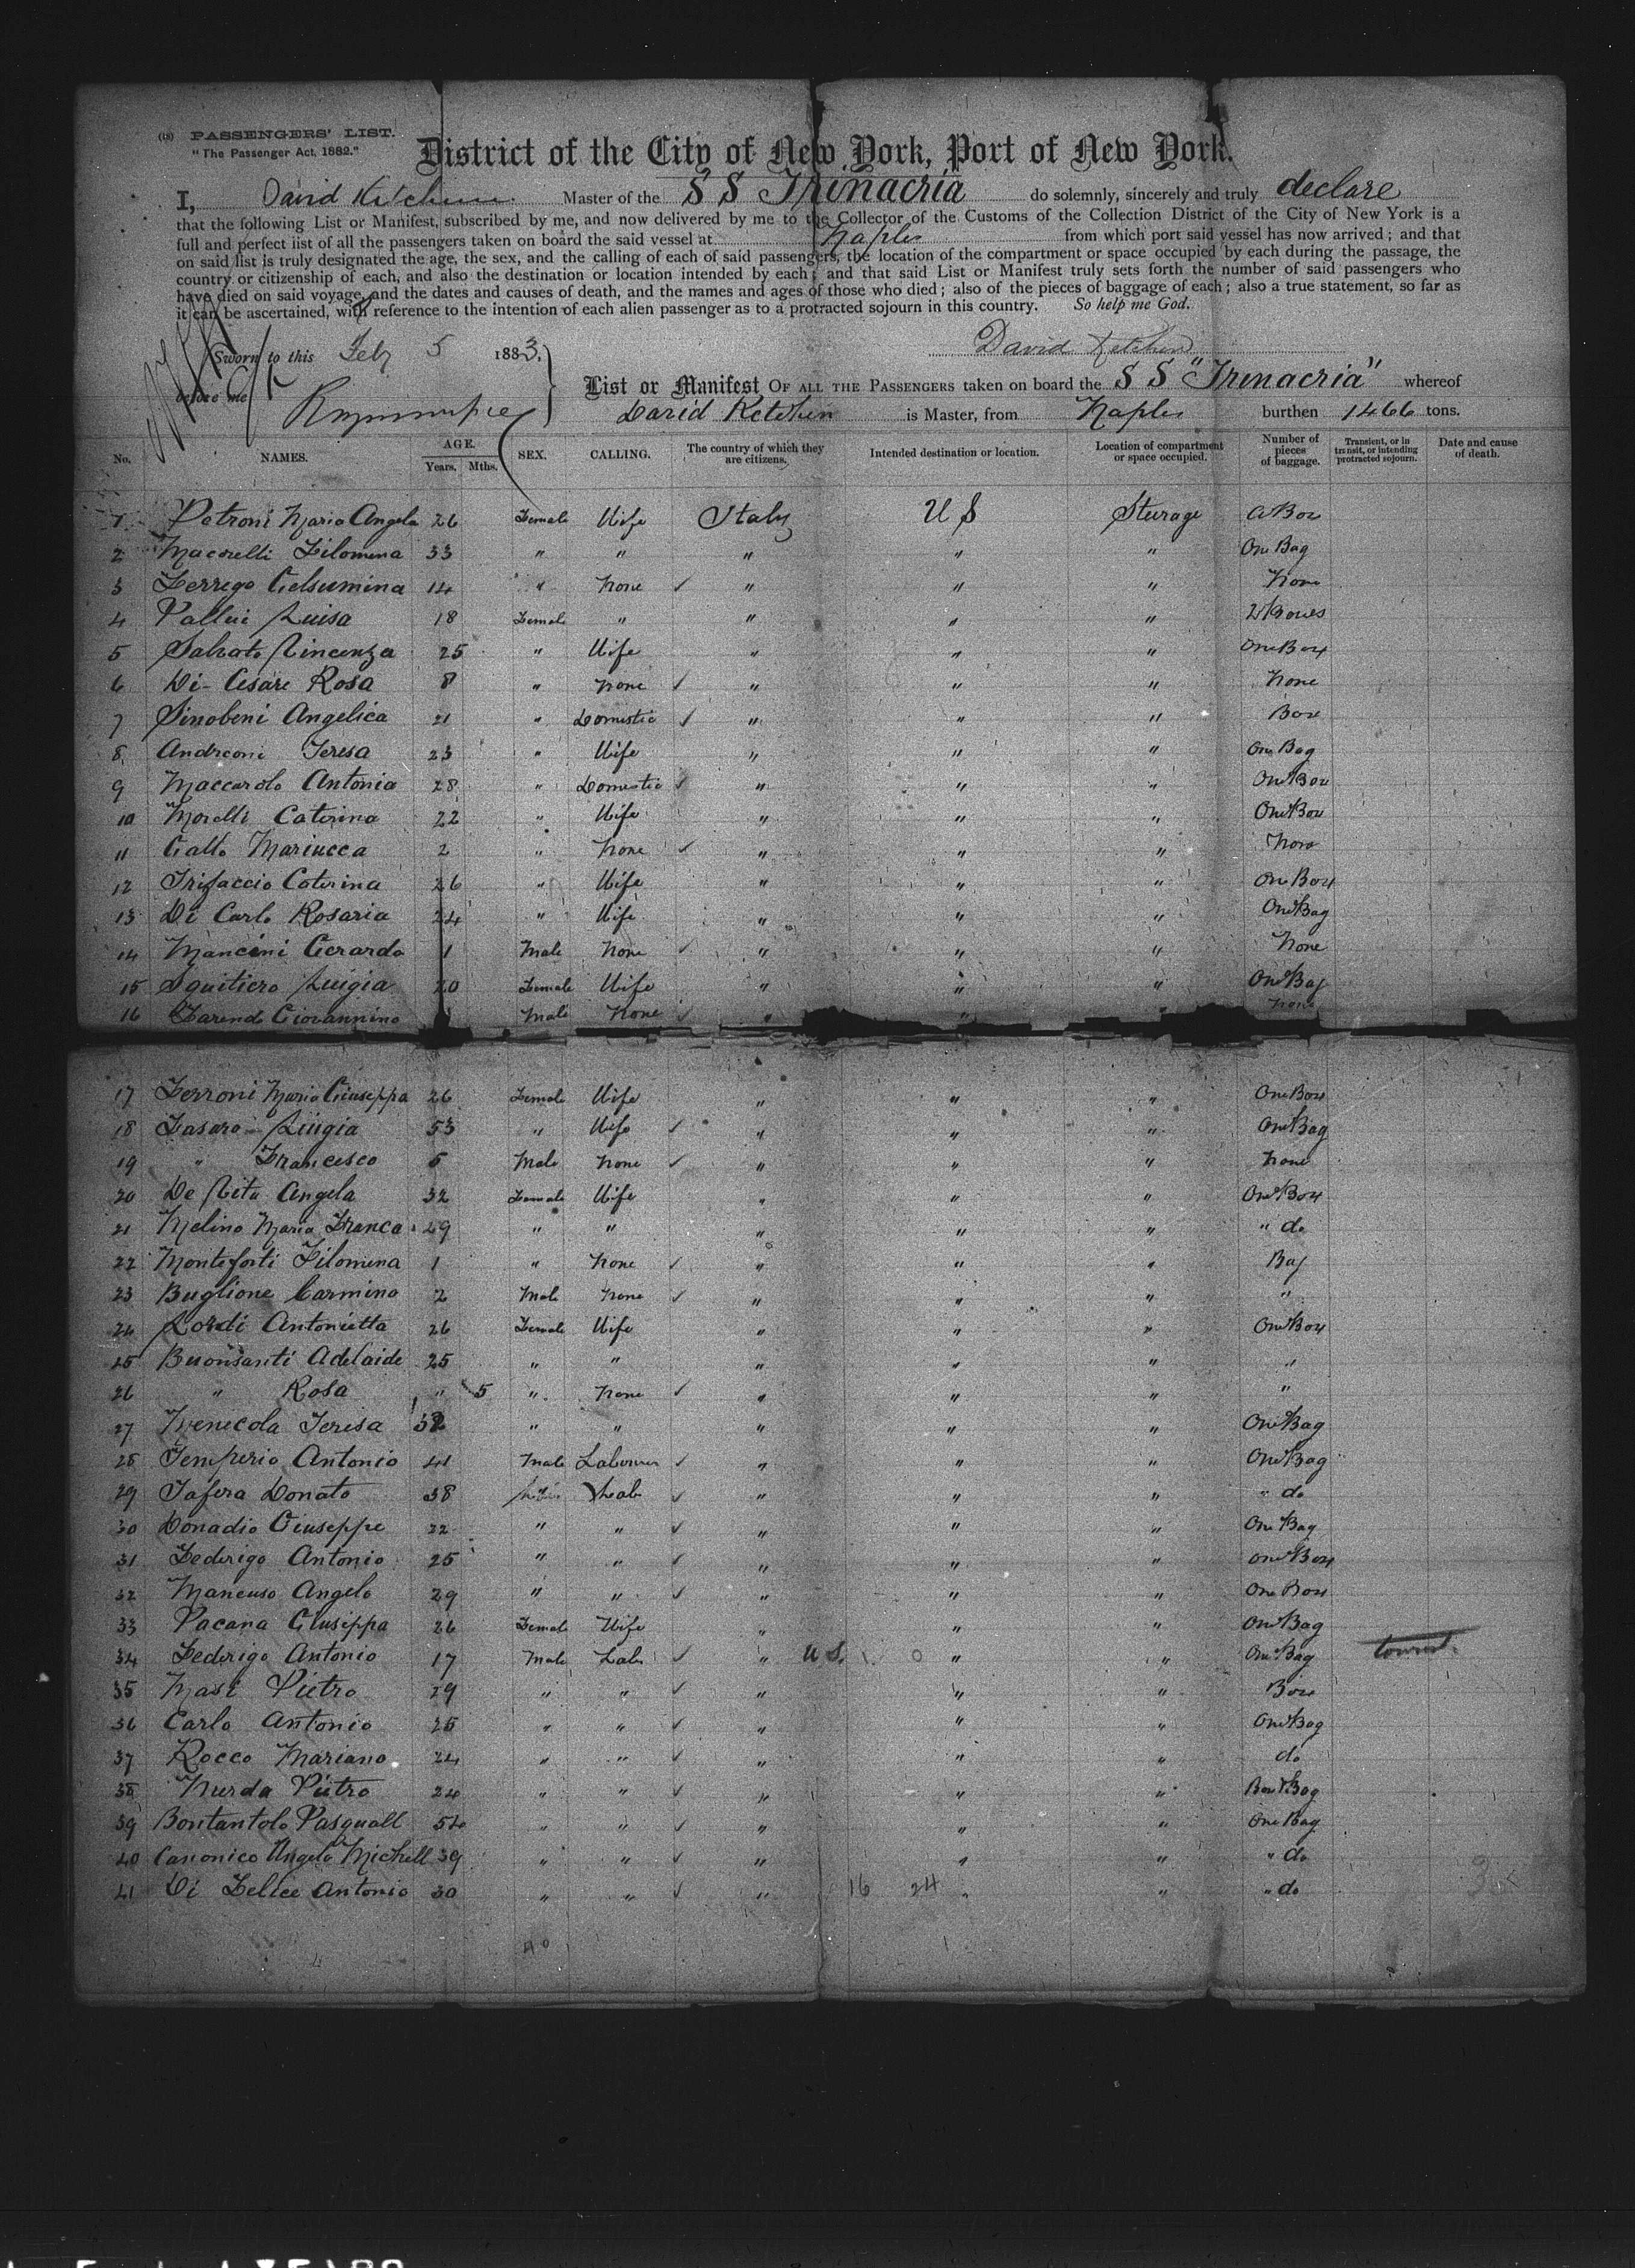 (18) PASSENGERS' LIST.
"The Passenger Act, 1882."
District of the City of New York, Port of New York.
I, David Ketchen Master of the S S Trinacria do solemnly, sincerely and truly declare
that the following List or Manifest, subscribed by me, and now delivered by me to the Collector of the Customs of the Collection District of the City of New York is a
full and perfect list of all the passengers taken on board the said vessel at Naples from which port said vessel has now arrived; and that
on said list is truly designated the age, the sex, and the calling of each of said passengers, the location of the compartment or space occupied by each during the passage, the
country or citizenship of each, and also the destination or location intended by each; and that said List or Manifest truly sets forth the number of said passengers who
have died on said voyage, and the dates and causes of death, and the names and ages of those who died; also of the pieces of baggage of each; also a true statement, so far as
it can be ascertained, with reference to the intention of each alien passenger as to a protracted sojourn in this country. So help me God.
Sworn to this Feby 5 1883. David Ketchen
before me
List or Manifest OF ALL THE PASSENGERS taken on board the S S "Trinacria" whereof
David Ketchen is Master, from Naples burthen 1466 tons.
No. NAMES. AGE. Years. Mths. SEX. CALLING. The country of which they are citizens. Intended destination or location. Location of compartment or space occupied. Number of pieces of baggage. Transient, or in transit, or intending protracted sojourn. Date and cause of death.
1 Petroni Maria Angela 26 Female Wife Italy U S Sturage a Box
2 Macorelli Filomena 33 " " " " " One Bag
3 Ferrego Gelsumina 14 " None ✓ " " " None
4 Pallui Luisa 18 Female " " " "
5 Salvato Vincenza 25 " Wife " " " One Box
6 Di-Cesare Rosa 8 " None ✓ " " " None
7 Sinobeni Angelica 21 " Domestic ✓ " " " Box
8 Andreoni Teresa 23 " Wife " " " One Bag
9 Maccarolo Antonia 28 " Domestic ✓ " " " One Box
10 Morelli Caterina 22 " Wife " " " One Box
11 Gallo Mariucca 2 " None ✓ " " " None
12 Trifaccio Caterina 26 " Wife " " " One Box
13 Di Carlo Rosaria 24 " Wife " " " One Bag
14 Mancini Gerardo 1 Male None ✓ " " " None
15 Squitiero Luigia 20 Female Wife " " " One Bag
16 Giovannino Male None ✓ " " None
17 Ferroni Maria Giuseppa 26 Female Wife " " " One Box
18 Fasaro Luigia 53 " Wife ✓ " " " One Bag
19 " Francesco 5 Male None ✓ " " " None
20 De Vita Angela 32 Female Wife " " " One Box
21 Melino Maria Franca 29 " " " " " " do
22 Monteforti Filomena 1 " None ✓ " " " Bag
23 Buglione Carmino 2 Male None ✓ " " " "
24 Lordi Antonietta 26 Female Wife " " " One Box
25 Buonsanti Adelaide 25 " " " " " "
26 " Rosa " 5 " None ✓ " " " "
27 Teresa 32 " " " " " One Bag
28 Temperio Antonio 41 Male Labourer ✓ " " " One Bag
29 Tafera Donato 38 ✓ " " " " do
30 Donadio Giuseppe 22 " " ✓ " " " One Bag
31 Federigo Antonio 25 " " ✓ " " " One Box
32 Mancuso Angelo 29 " " ✓ " " " One Box
33 Pacana Giuseppa 26 Female Wife " " " One Bag
34 Federigo Antonio 17 Male Labr ✓ " U S. 0 " " One Bag
35 Masi Pietro 29 " " ✓ " " " Box
36 Carlo Antonio 25 " " ✓ " " " One Bag
37 Rocco Mariano 24 " " ✓ " " " do
38 Nurda Pietro 24 " " ✓ " " " Box & Bag
39 Bontantolo Pasquall 54 " " ✓ " " " One Bag
40 Canonico Angelo Michell 39 " " ✓ " " " " do
41 Di Felice Antonio 30 " " ✓ " 16 24 " " " do
40